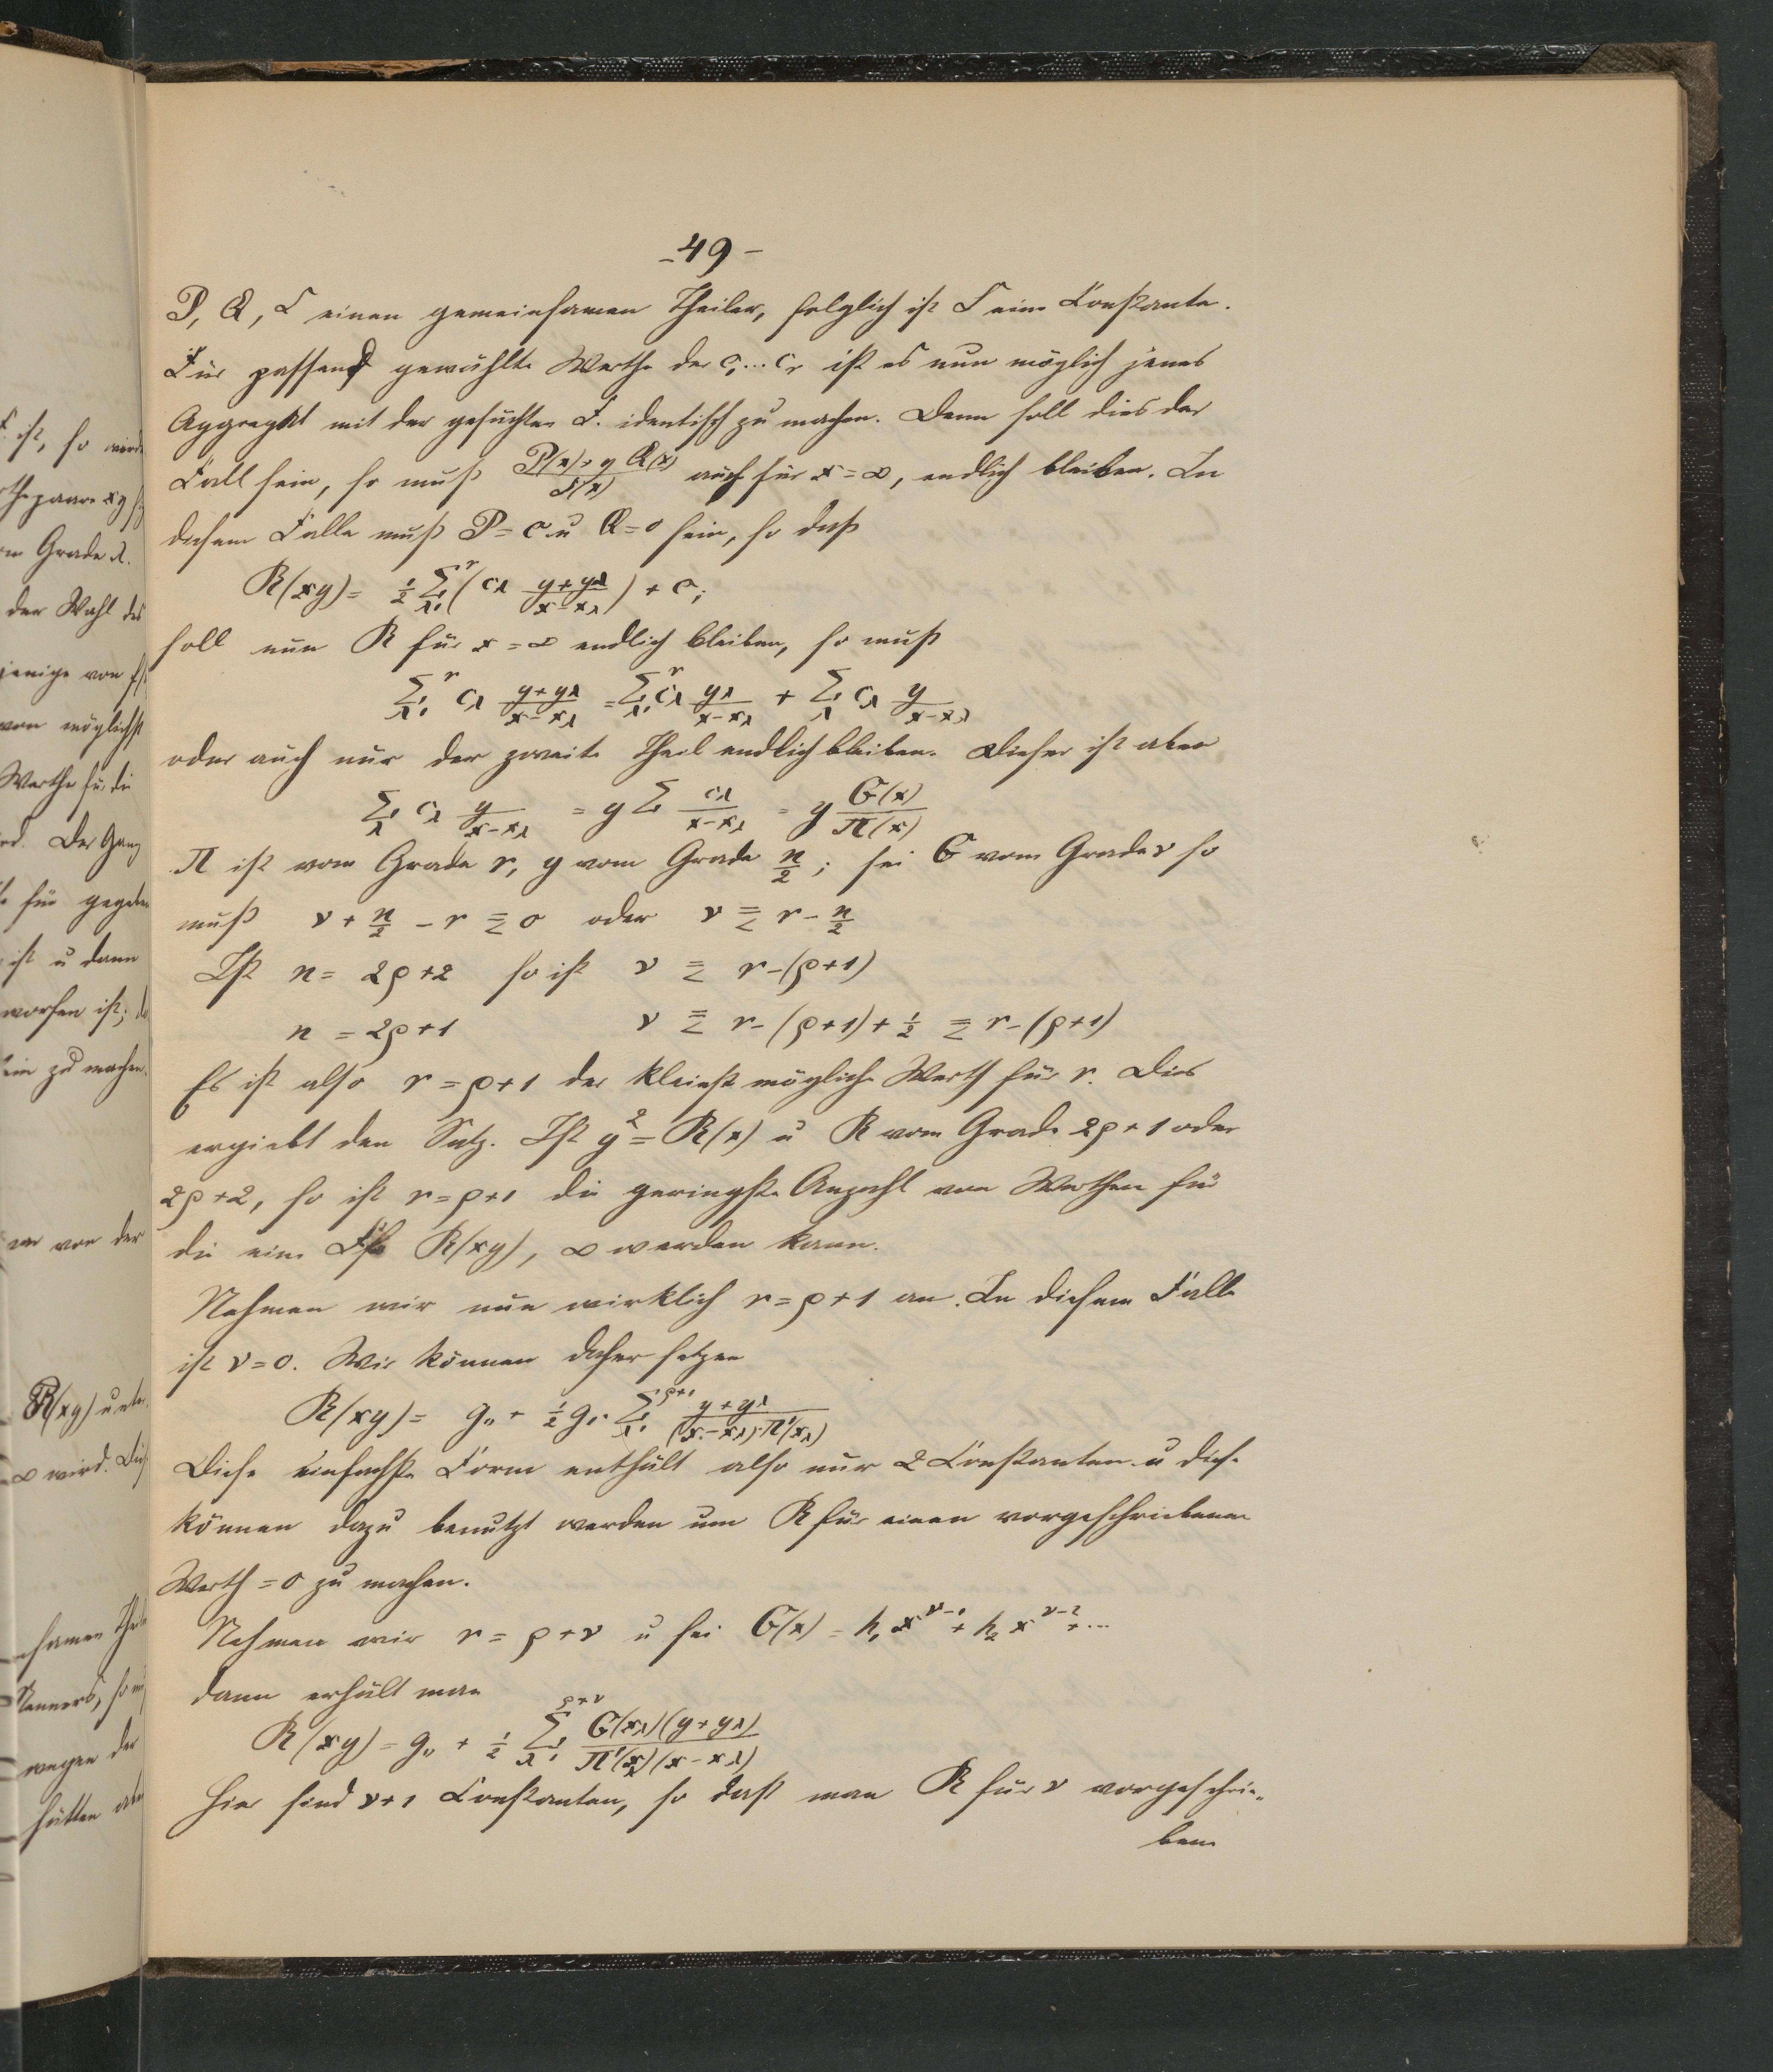 -49-
P, Q, S einen gemeinsamen Theiler, folglich ist S eine Constante.
Für passend gewählte Werthe der c₁...cᵣ ist es nun möglich jenes
Aggregat mit der gesuchten F. identisch zu machen. Denn soll dies der
Fall sein, so muß (P(x)+y Q(x))/S(x) auch für x=∞, endlich bleiben. In
diesem Falle muß P=c u Q=0 sein, so daß
R(xy) = ½ Σ_{λ,1}^r (c_λ (y+y_λ)/(x-x_λ)) + c;
soll nun R für x=∞ endlich bleiben, so muß
Σ_{λ,1}^r c_λ (y+y_λ)/(x-x_λ) = Σ_{λ,1}^r c_λ y_λ/(x-x_λ) + Σ_λ c_λ y/(x-x_λ)
oder auch nur der zweite Theil endlich bleiben. Dieser ist aber
Σ_λ c_λ y/(x-x_λ) = y Σ c_λ/(x-x_λ) = y G(x)/Π(x)
Π ist vom Grade r, y vom Grade n/2; sei G vom Grade ν so
muß ν + n/2 - r ≦ 0 oder ν ≦ r - n/2
Ist n = 2ρ+2 so ist ν ≦ r-(ρ+1)
n = 2ρ+1 ν ≦ r-(ρ+1)+½ ≦ r-(ρ+1)
Es ist also r=ρ+1 der kleinst mögliche Werth für r. Dies
ergiebt den Satz. Ist y² = R(x) u R vom Grade 2ρ+1 oder
2ρ+2, so ist r=ρ+1 die geringste Anzahl von Werthen für
die eine R(xy), ∞ werden kann.
Nehmen wir nun wirklich r=ρ+1 an. In diesem Falle
ist ν=0. Wir können daher setzen
R(xy) = g₀ + ½ g₁ Σ_{λ,1}^{ρ+1} (y+y_λ)/((x-x_λ)·Π'(x_λ))
Diese einfachste Form enthält also nur 2 Constanten u diese
können dazu benutzt werden um R für einen vorgeschriebenen
Werth = 0 zu machen.
Nehmen wir r = ρ+ν u sei G(x) = h₁ x^{ν-1} + h₂ x^{ν-2} + ...
dann erhält man
R(xy) = g₀ + ½ Σ_{λ,1}^{ρ+ν} G(x_λ)(y+y_λ)/(Π'(x_λ)(x-x_λ))
Hier sind ν+1 Constanten, so daß man R für ν vorgeschrie-
bene